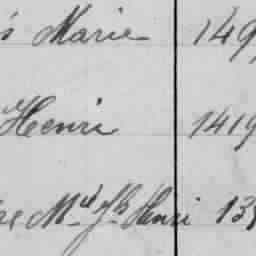 Marie 149
Henri 1419
Md Jh Henri 139